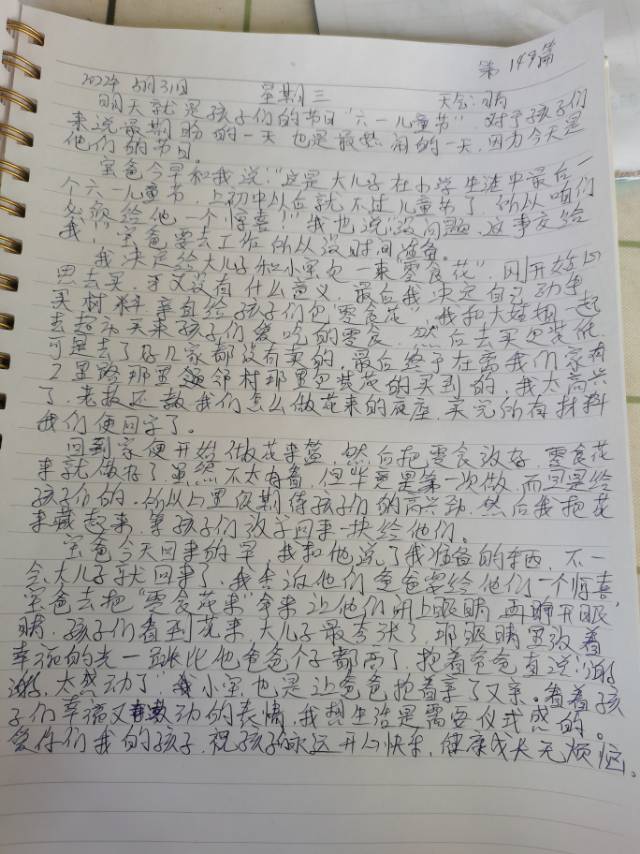 第149篇
5月31日 星期三 天气:晴
明天就是孩子们的节日"六一儿童节".对于孩子们
来说最期盼的一天也是最热闹的一天,因为今天是
他们的节日。
宝爸今早和我说:"这是大儿子在小学生涯中最后一
个六一儿童节,上初中以后就不过儿童节了,所以咱们
必须给他一个惊喜!"我也说:"没问题,这事交给
我",宝爸要去工作所以没时间准备。
我决定给大儿子和小宝包一束"零食花",刚开始
思去买,才又没有什么意义,最后我决定自己动手
买材料,亲自给孩子们包"零食花",我和大姑姐一起
去超市买来孩子们爱吃的零食,然后去买包装纸
可是去了好几家都没有卖的,最后终于在离我们家有
2里路那里邻村那里买到的,我太高兴
了,老板还教我们怎么做花束的底座,买完所有材料
我们便回家了。
回到家便开始做花束篮,然后把零食放好,零食花
束就做好了,虽然不太,但毕竟是第一次做,而且是给
孩子们的,所以心里很期待孩子们的高兴劲,然后我把花
束藏起来,等孩子们放学回来一块给他们。
宝爸今天回来的早,我和他说了我准备的东西,不一
会大儿子就回来了,我告诉他们爸爸要给他们一个惊喜,
宝爸去把"零食花束"拿来让他们闭上眼睛再睁开眼
睛,孩子们看到花束,大儿子最夸张了,那眼睛里放着
幸福的光一跳比他爸爸个子都高了,抱着爸爸直说:"谢
谢,太感动了"小宝也是让爸爸抱着亲了又亲。看着孩
子们幸福又激动的表情,我想生活是需要仪式感的。
爱你们我的孩子,祝孩子永远开心快乐,健康成长无烦恼。